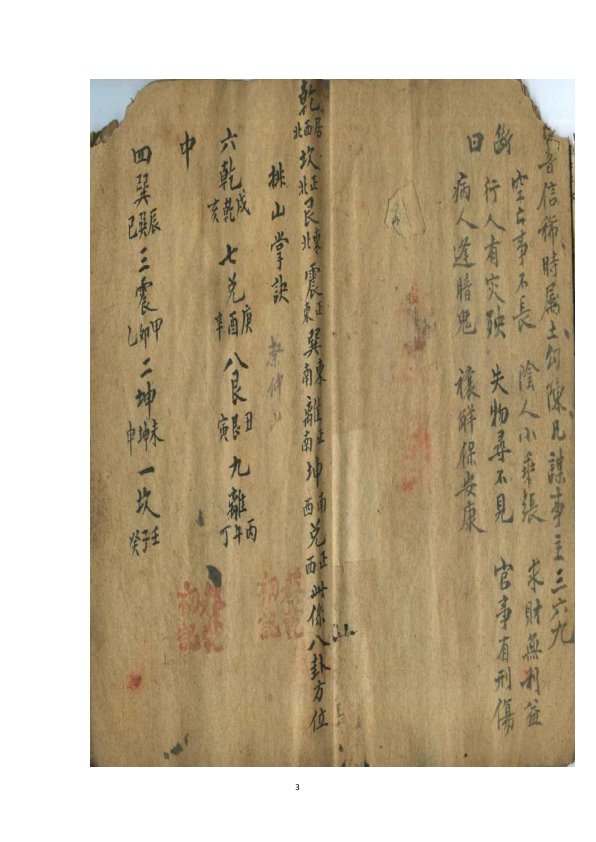 音信稀時屬土勾陳凡謀事主三六九
空亡事不長 陰人小乖張 求財無利益
斷 行人有災殃 失物尋不見 官事有刑傷
曰 病人逢暗鬼 禳解保安康
乾居西北坎正北艮東北震正東巽東南離正南坤南西兑正西此係八卦方位
排山掌訣
六乾戌乾亥 七兑庚酉辛 八艮丑艮寅 九離丙午丁
中
四巽辰巽巳 三震甲卯乙 二坤未坤申 一坎壬子癸
3